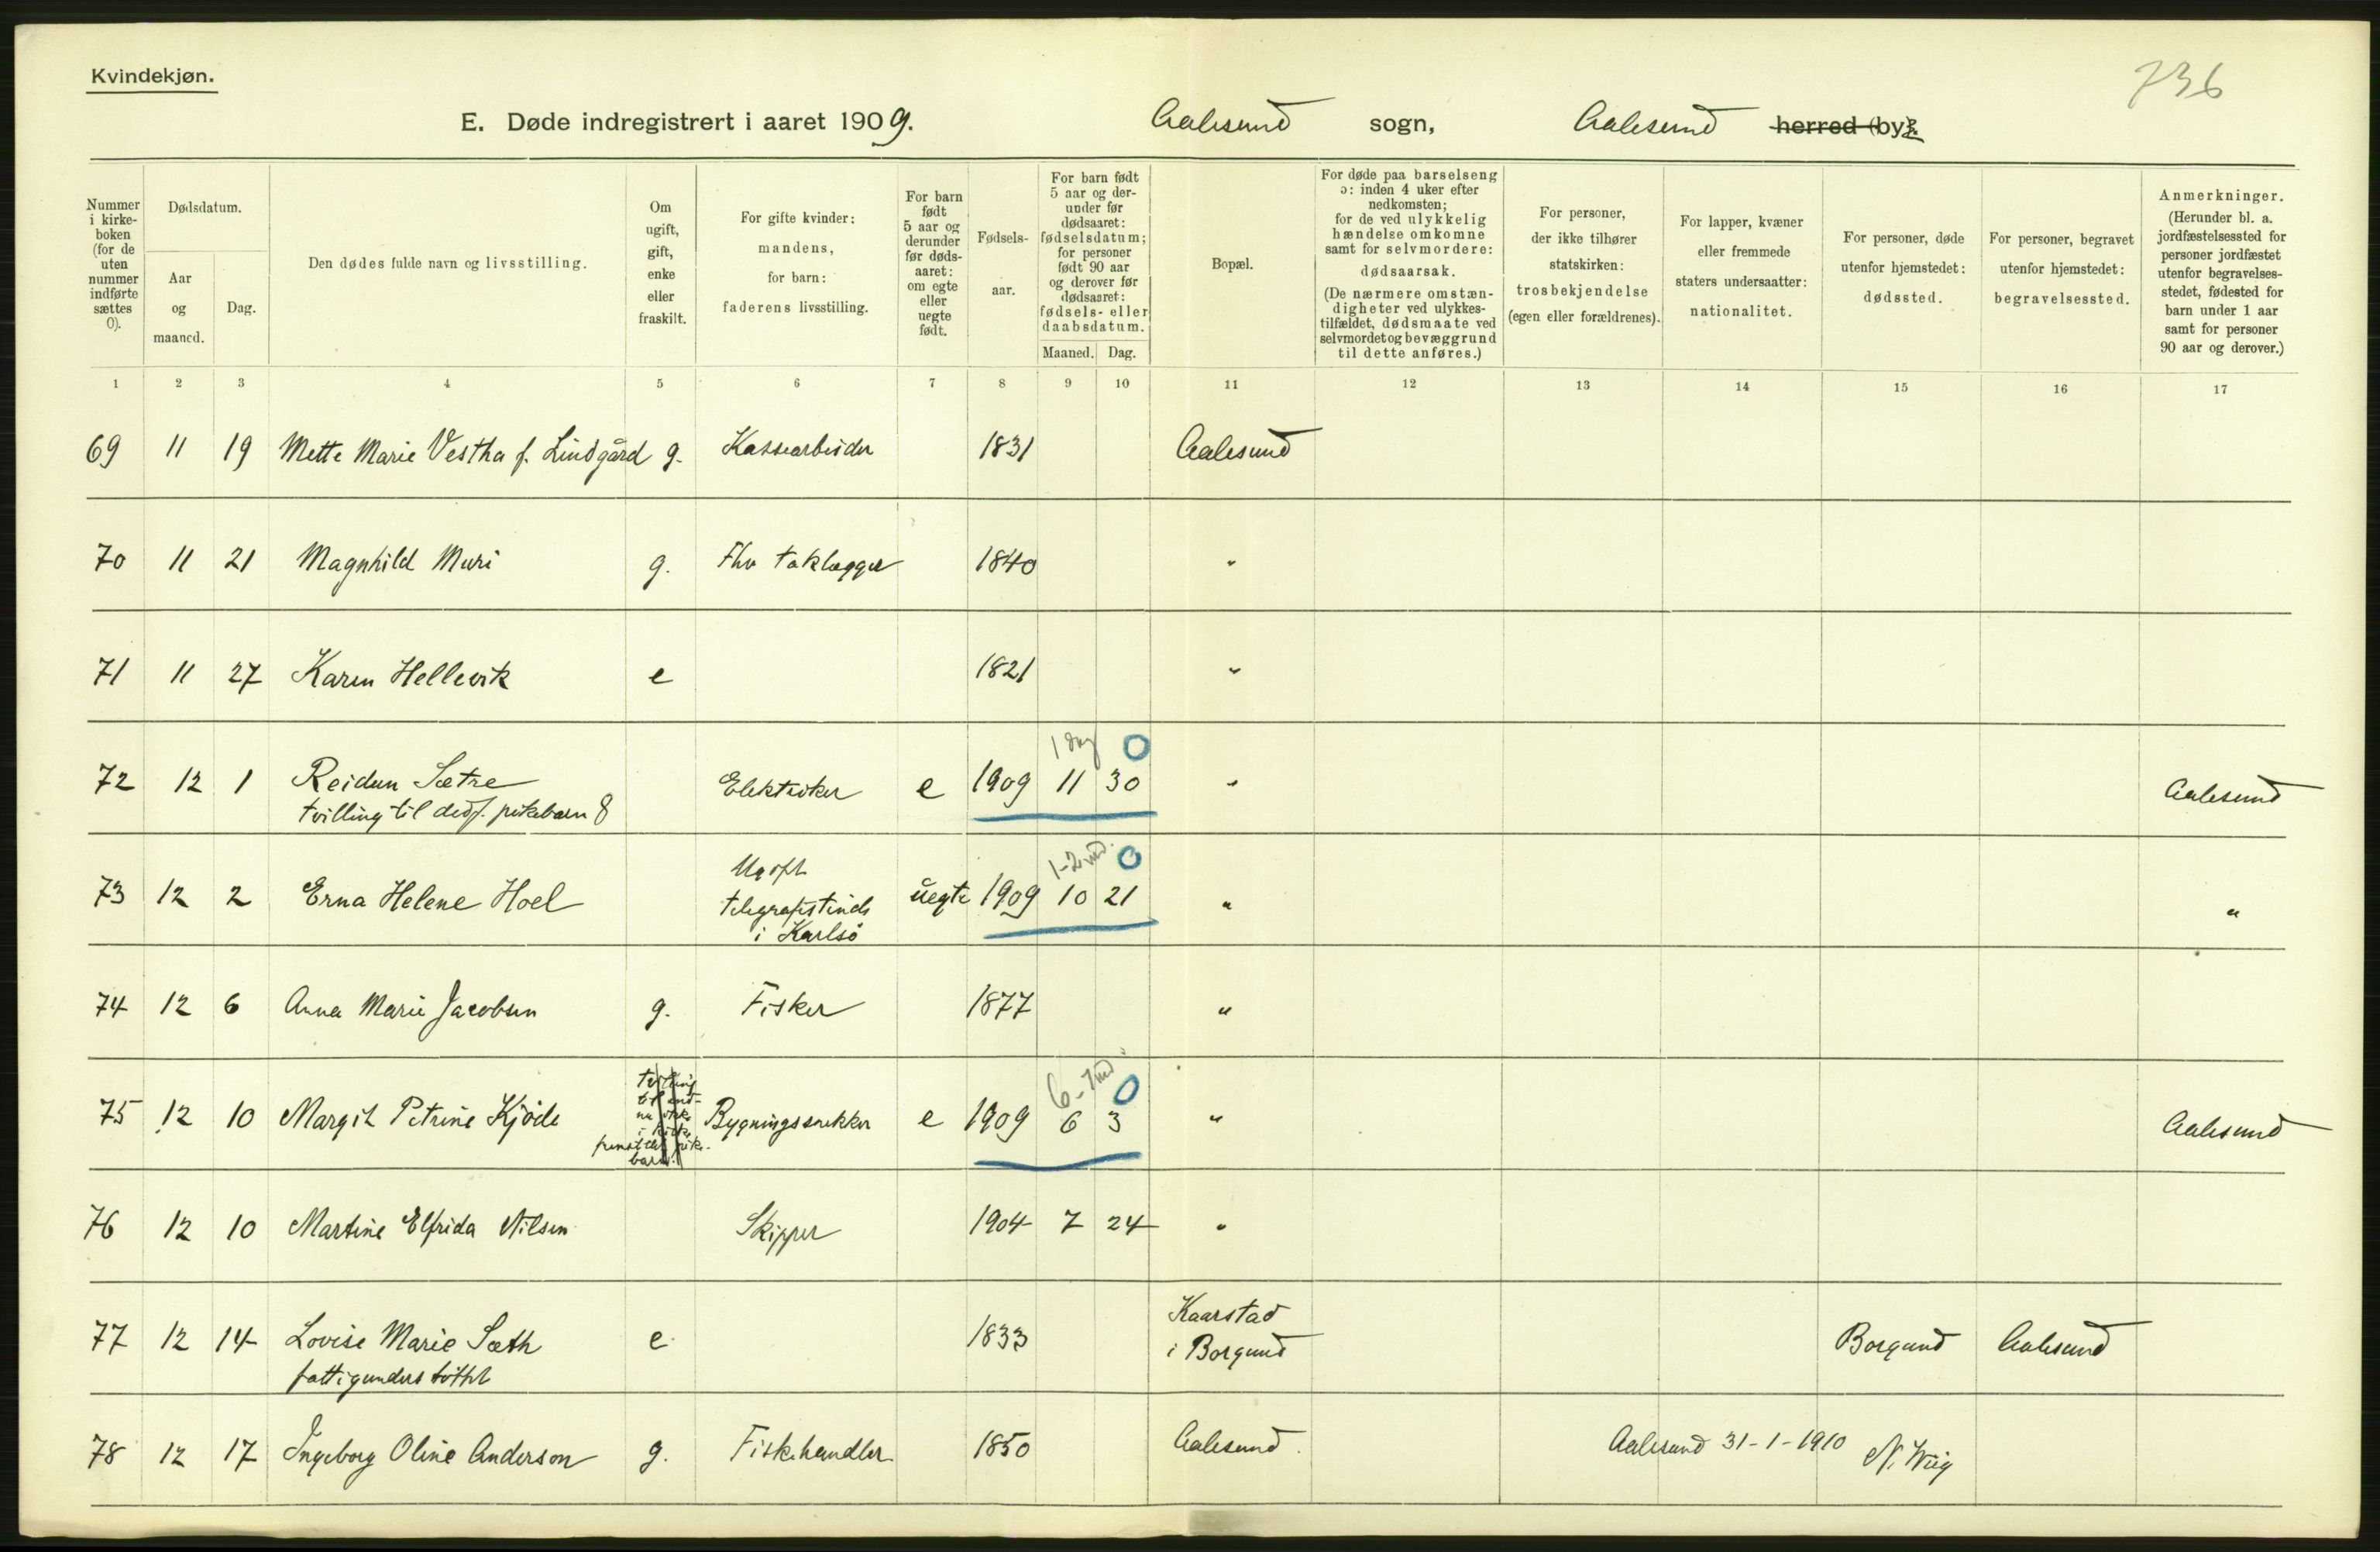 Kvindekjøn.
736
E. Døde indregistrert i aaret 1909. Aalesund sogn, Aalesund herred (by).
Nummer
i kirke-
boken
(for de
uten
nummer
indførte
sættes
0).
Dødsdatum.
Aar
og
maaned.
Dag.
Den dødes fulde navn og livsstilling.
Om
ugift,
gift,
enke
eller
fraskilt.
For gifte kvinder:
mandens,
for barn:
faderens livsstilling.
For barn
født
5 aar og
derunder
før døds-
aaret:
om egte
eller
uegte
født.
Fødsels-
aar.
For barn født
5 aar og der-
under før
dødsaaret:
fødselsdatum;
for personer
født 90 aar
og derover før
dødsaaret:
fødsels- eller
daabsdatum.
Maaned. Dag.
Bopæl.
For døde paa barselseng
ɔ: inden 4 uker efter
nedkomsten;
for de ved ulykkelig
hændelse omkomne
samt for selvmordere:
dødsaarsak.
(De nærmere omstæn-
digheter ved ulykkes-
tilfældet, dødsmaate ved
selvmordet og bevæggrund
til dette anføres.)
For personer,
der ikke tilhører
statskirken:
trosbekjendelse
(egen eller forældrenes).
For lapper, kvæner
eller fremmede
staters undersaatter:
nationalitet.
For personer, døde
utenfor hjemstedet:
dødssted.
For personer, begravet
utenfor hjemstedet:
begravelsessted.
Anmerkninger.
(Herunder bl. a.
jordfæstelsessted for
personer jordfæstet
utenfor begravelses-
stedet, fødested for
barn under 1 aar
samt for personer
90 aar og derover.)
1 2 3 4 5 6 7 8 9 10 11 12 13 14 15 16 17
69 11 19 Mette Marie Vestha f. Lindgård g. Kassearbeider 1831 Aalesund
70 11 21 Magnhild Muri g. Fhv taklægger 1840 "
71 11 27 Karen Hellevik e 1821 "
1 dag 0
72 12 1 Reidun Sætre Elektriker e 1909 11 30 " Aalesund
tvilling til dødf. pikebarn 8
1-2 md. 0
Ugift
73 12 2 Erna Helene Hoel telegrafistinde uegte 1909 10 21 " "
i Karlsö
74 12 6 Anna Marie Jacobsen g. Fisker 1877 "
6-7 md 0
75 12 10 Margit Petrine Kjöde Bygningssnekker e 1909 6 3 " Aalesund
barn
76 12 10 Martine Elfrida Nilsen Skipper 1904 7 24 "
Kaarstad
77 12 14 Lovise Marie Sæth e 1833 i Borgund Borgund Aalesund
fattigunderstöttet
78 12 17 Ingeborg Oline Anderson g. Fiskehandler 1850 Aalesund. Aalesund 31-1-1910 N. Wiig